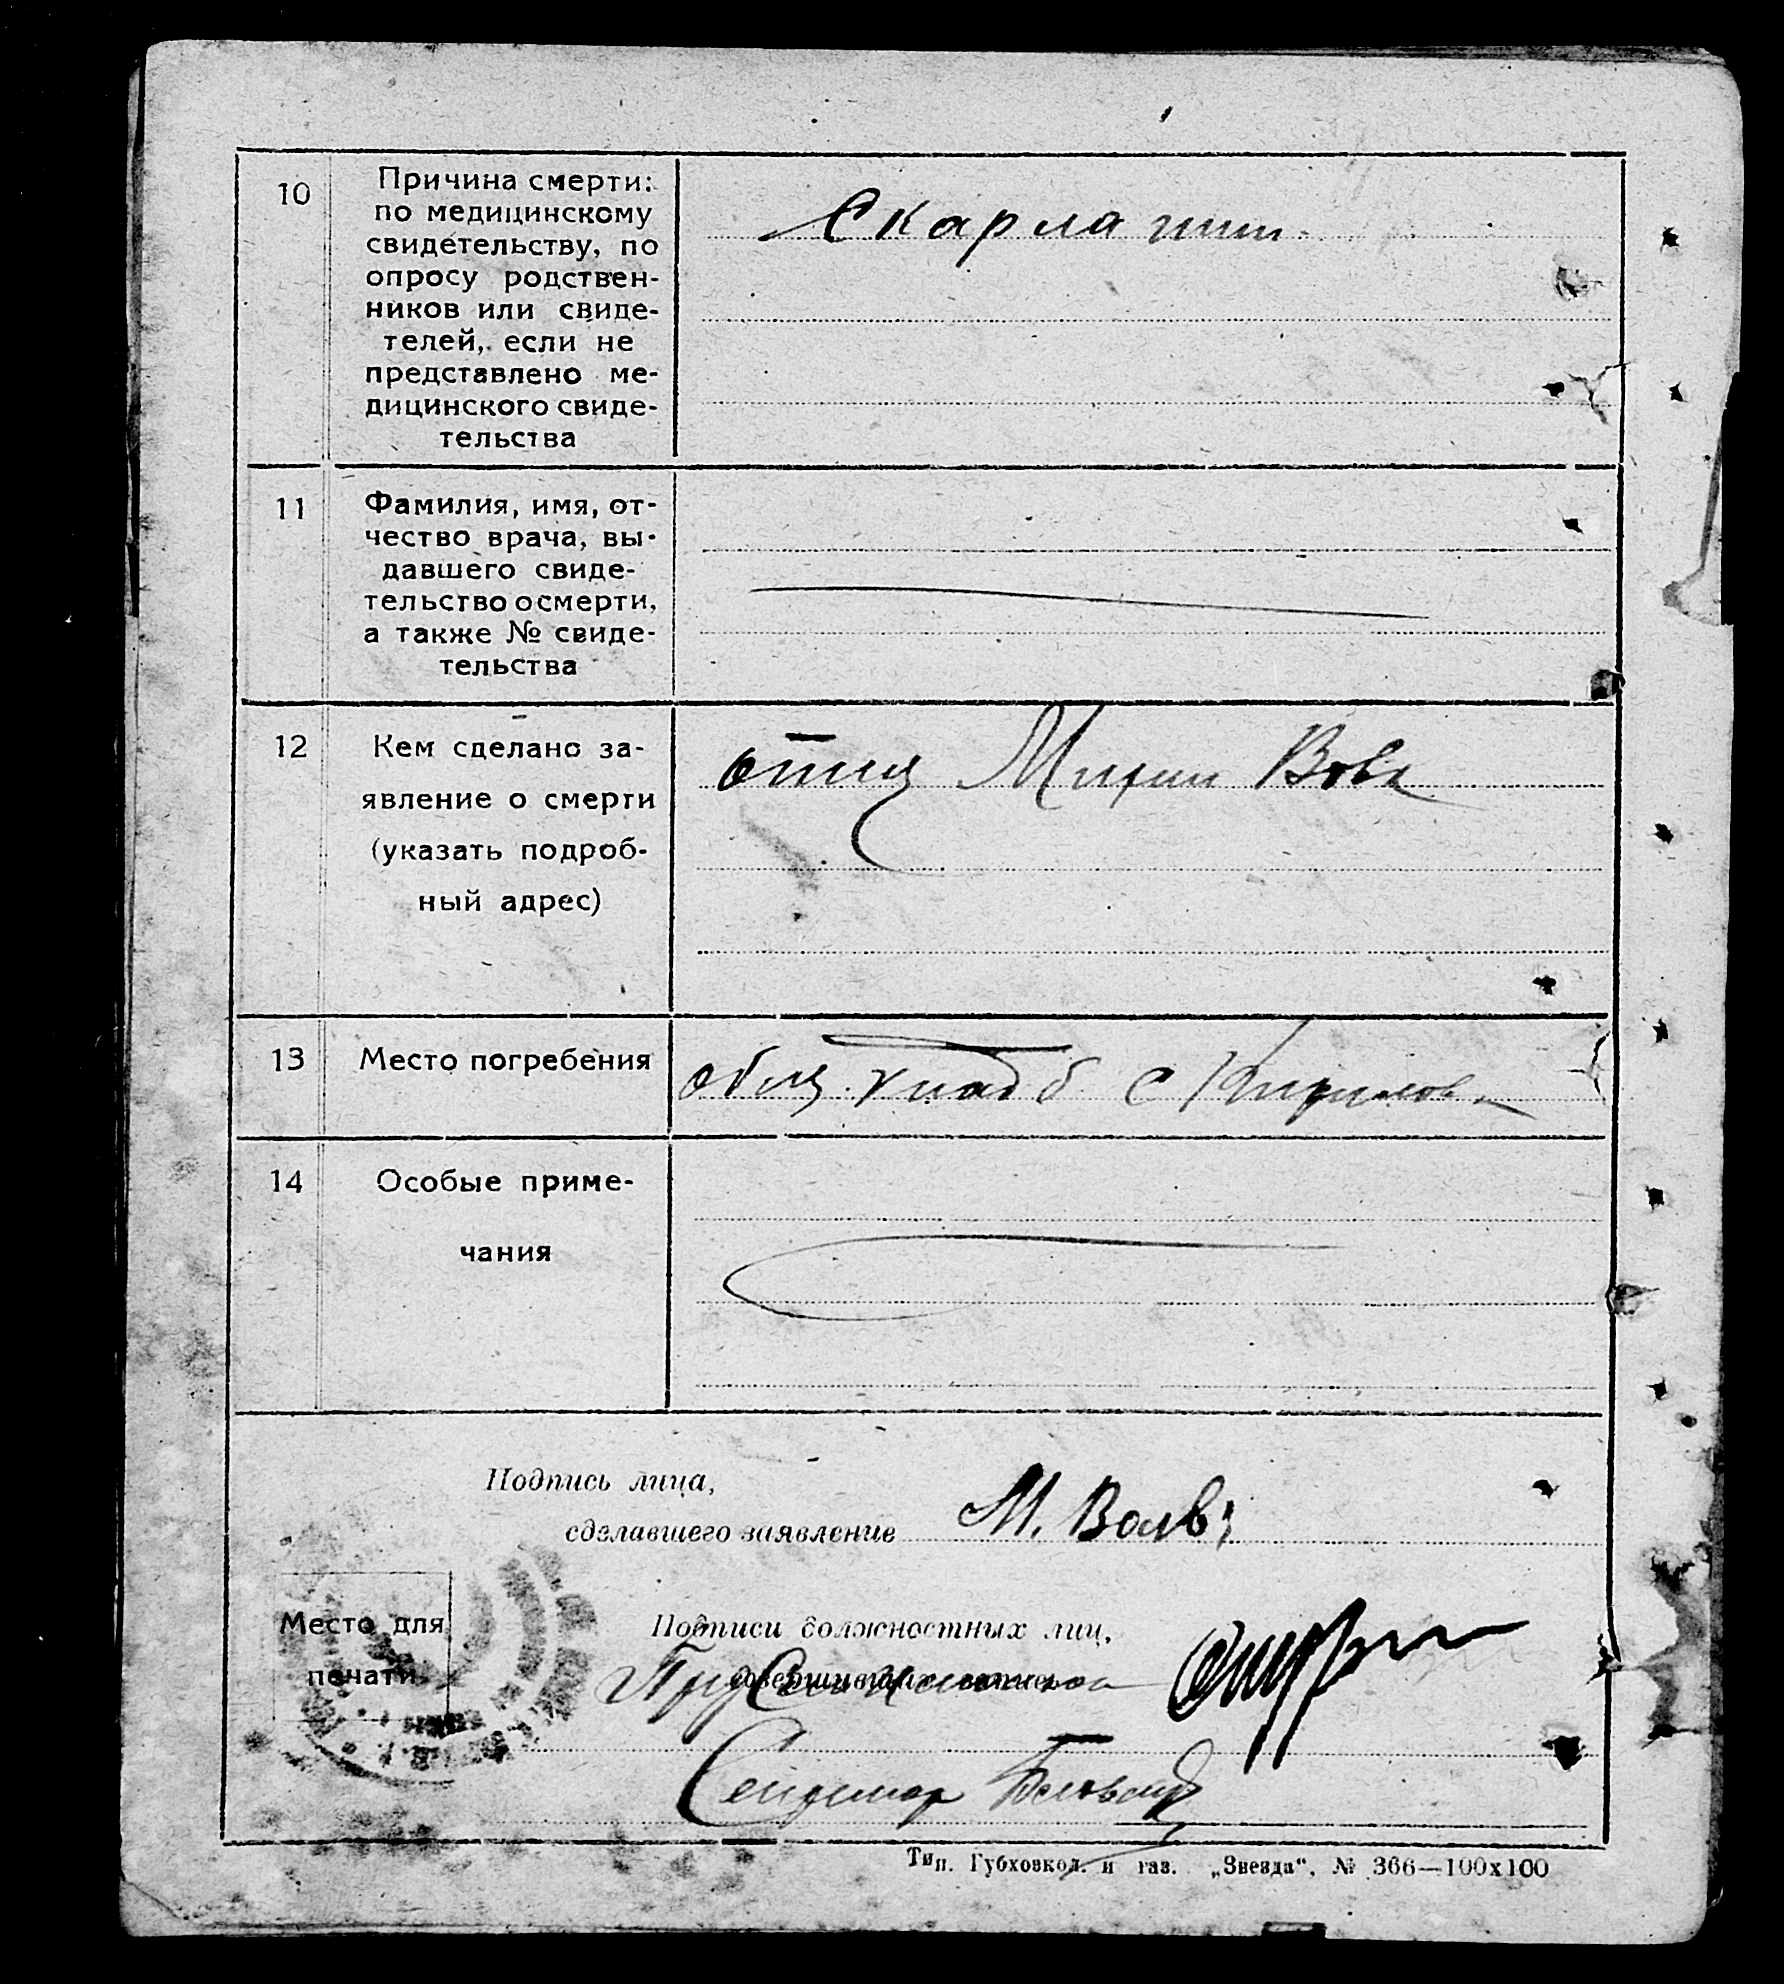 10
Причина смерти:
по медицинскому
свидетельству, по
опросу родствен-
ников или свиде-
телей, если не
представлено ме-
дицинского свиде-
тельства
Скарлатин
11
Фамилия, имя, от-
чество врача, вы-
давшего свиде-
тельство о смерти,
а также № свиде-
тельства
12
Кем сделано за-
явление о смерти
(указать подроб-
ный адрес)
отец
13
Место погребения
общ кладб с
14
Особые приме-
чания
Подпись лица,
сделавшего заявление М. Вольв
Место для
печати
Подписи должностных лиц,
совершивших запись
Тип. Губховкол. и газ. „Звезда“, № 366—100х100